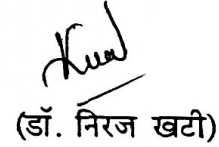 (डॉ. निरज खटी)